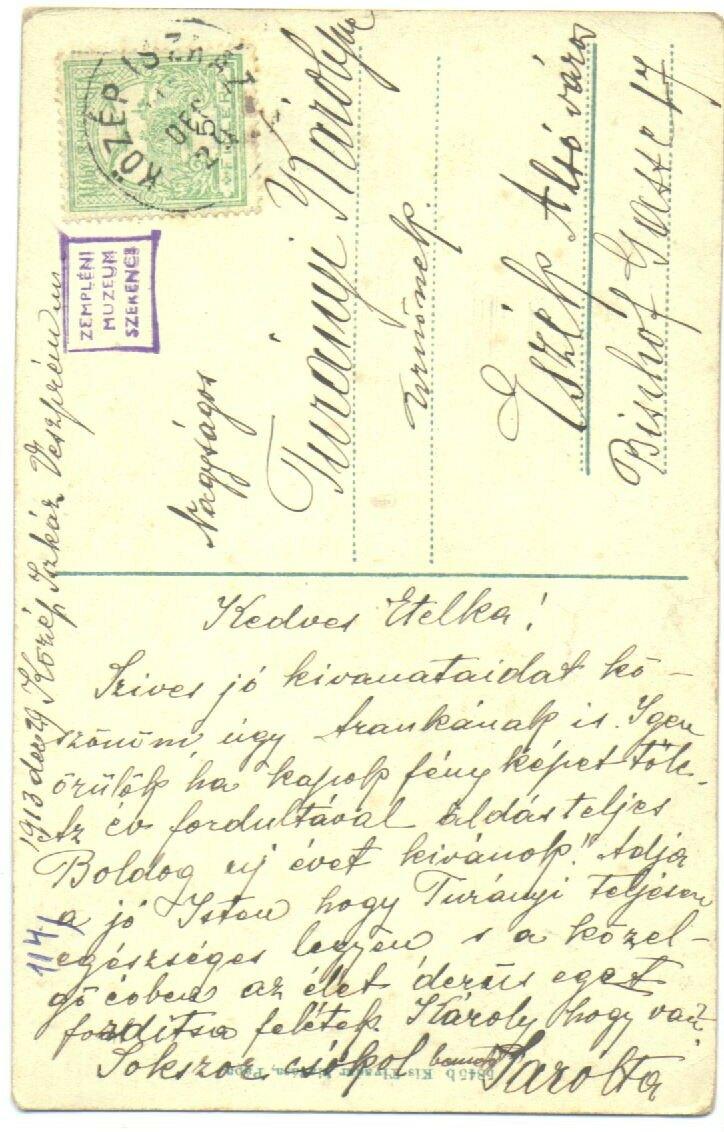 KÖZÉP ISZKÁZ
DEC
ZEMPLÉNI
MUZEUM
SZERENCS
Nagyságos
Turányi Károlyné
urnőnek
Eszék Alsó város
Bischóf Gasse 17
1913 dec 29 Közép Iszkáz Veszprém m
Kedves Etelka!
Szives jó kivanataidat kö-
szönöm, úgy Arankának is. Igen
örülök ha kapok fény képet tőle-
Az év fordultával áldásteljes
Boldog uj évet kivánok! Adja
a jó Isten hogy Turányi teljésen
egészséges legyen s a közel-
gő évben az élet derűs eget
fordítsa felétek. Károly hogy van?
Sokszor csókol Sarolta
114/